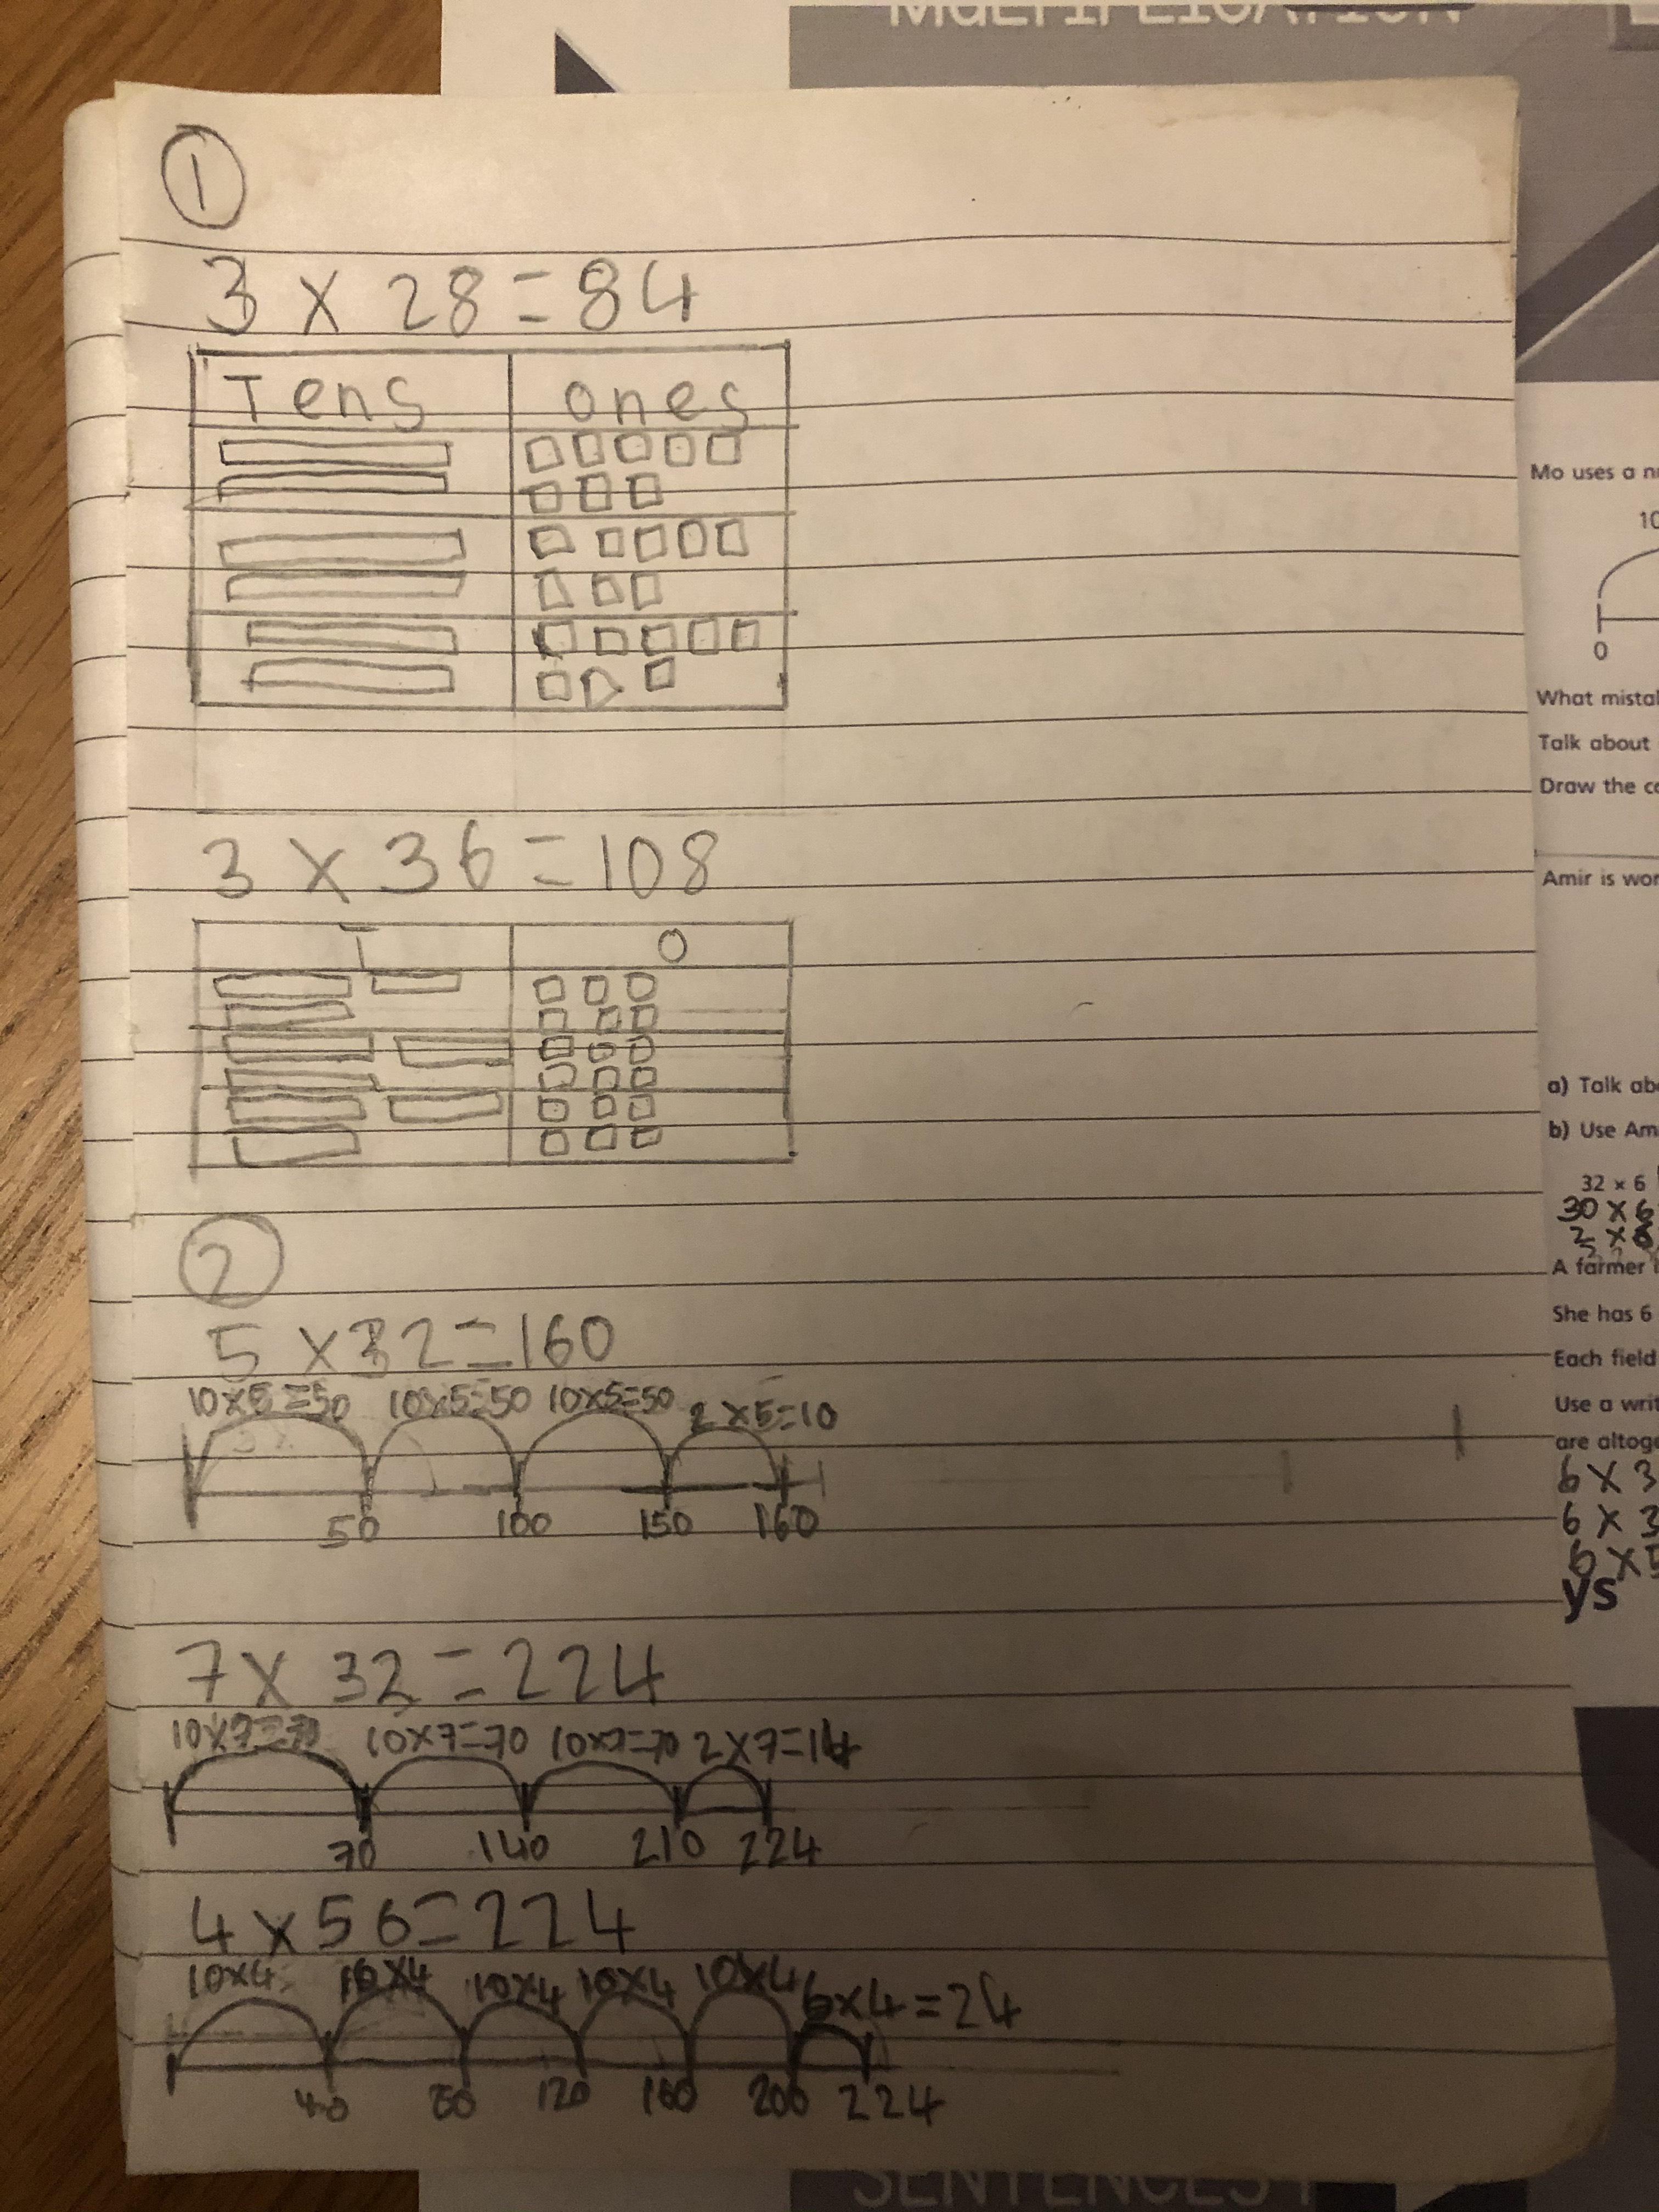 MULTIPLICATION
1
3 x 28 = 84
Tens ones
3 x 36 = 108
T O
2
5 x 32 = 160
10x5=50 10x5=50 10x5=50 2x5=10
50 100 150 160
7 x 32 = 224
10x7=70 10x7=70 10x7=70 2x7=14
70 140 210 224
4 x 56 = 224
10x4 10x4 10x4 10x4 10x4 6x4=24
40 80 120 160 200 224
Mo uses a
10
0
What
Talk about
Draw the
Amir is
a) Talk
b) Use
32 × 6
30 x 6
2 x 6
A farmer
She has 6
Each field
Use a
are
6 x 3
6 x 3
6 x 5
ys
SENTENCES